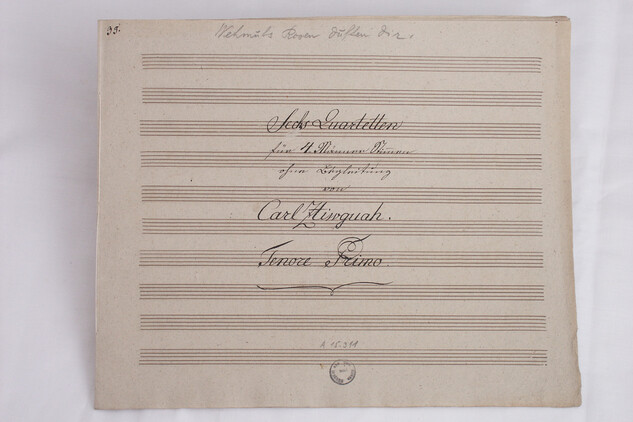 33.
Wehmuts Rosen duften dir.
Sechs Quartetten
für 4. Männer Stimen
ohne Begleitung
von
Carl
Tenore Primo.